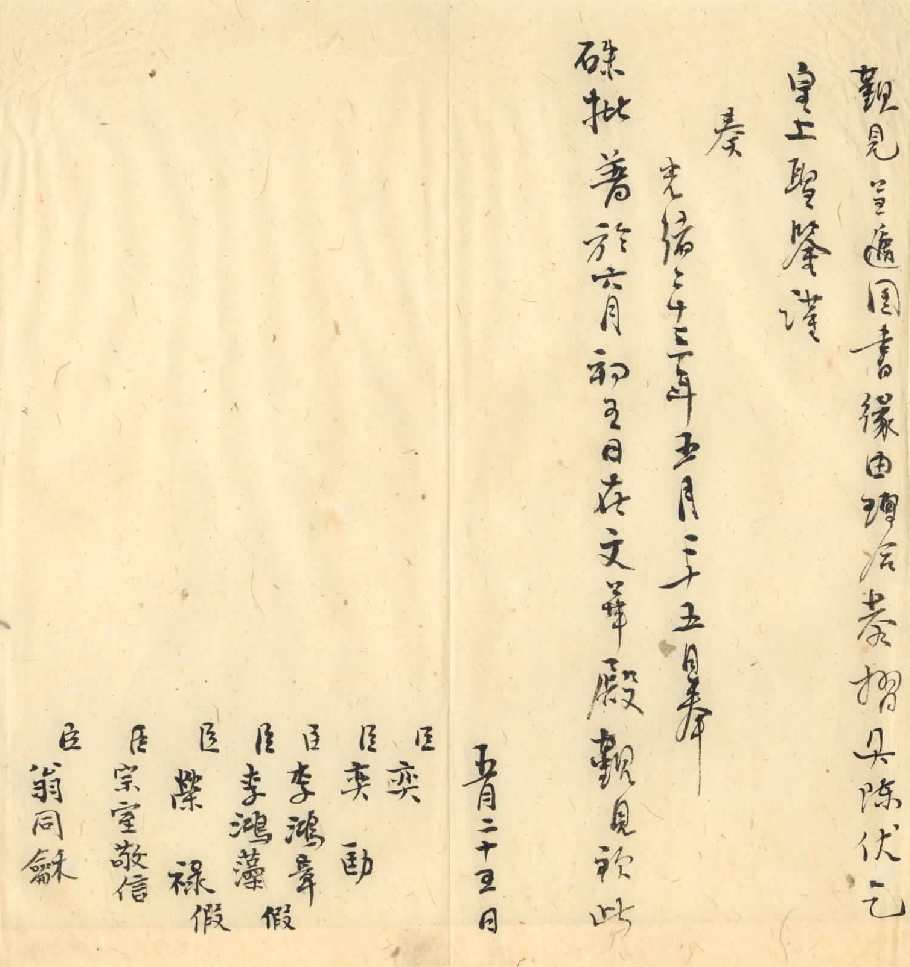 覲見呈遞國書緣由理合恭摺具陳伏乞
皇上聖鑒謹
奏
光緒二十三年五月二十五日奉
硃批著於六月初五日在文華殿覲見欽此
五月二十五日
臣奕
臣奕劻
臣李鴻章
臣李鴻藻假
臣榮祿假
臣宗室敬信
臣翁同龢